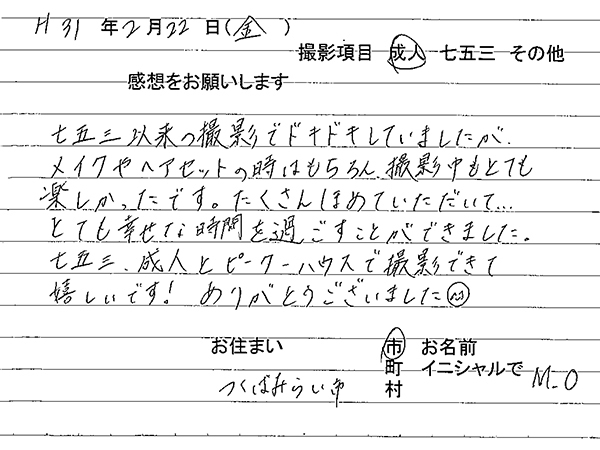 H 31 年 2 月 22 日 (金)
撮影項目 成人 七五三 その他
感想をお願いします
七五三以来の撮影でドキドキしていましたが、
メイクやヘアセットの時はもちろん、撮影中もとても
楽しかったです。たくさんほめていただいて…
とても幸せな時間を過ごすことができました。
七五三、成人とピーターハウスで撮影できて
嬉しいです! ありがとうございました
お住まい 市 お名前
町 イニシャルで
つくばみらい市 村 M.O